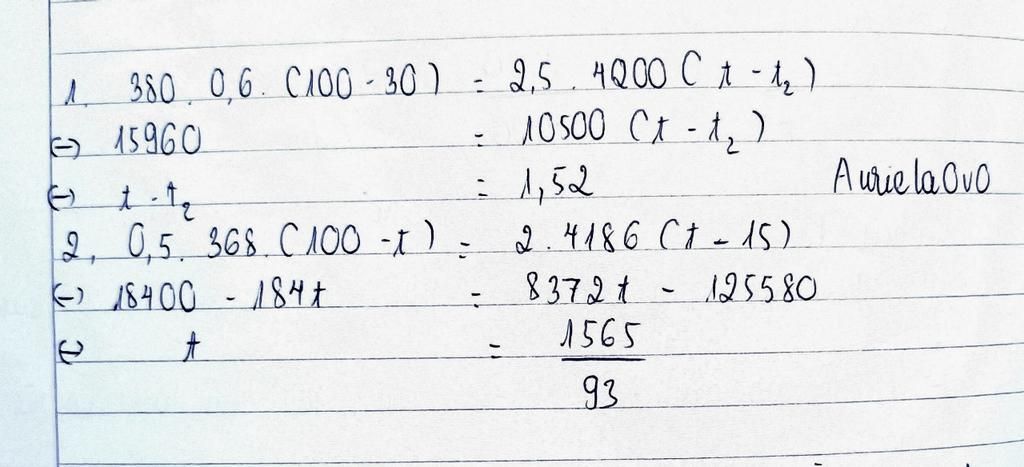 1. 380. 0,6. (100 - 30) = 2,5. 4200 (t - t₂)
⇔ 15960 = 10500 (t - t₂)
⇔ t - t₂ = 1,52
Auriela0v0
2, 0,5. 368. (100 - t) = 2. 4186 (t - 15)
⇔ 18400 - 184t = 8372t - 125580
⇔ t = 1565/93